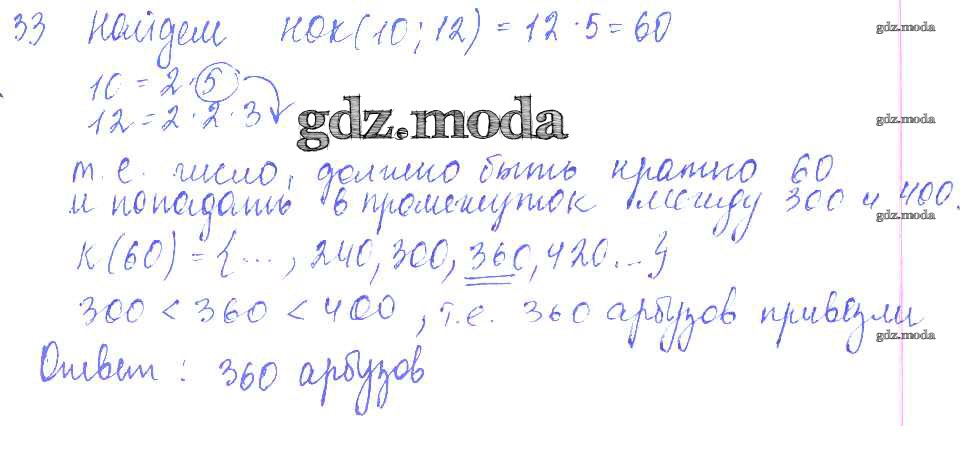 33 Найдем НОК(10; 12) = 12 · 5 = 60
gdz.moda
10 = 2 · 5
12 = 2 · 2 · 3
gdz.moda
gdz.moda
т.е. число, должно быть кратно 60
и попадать в промежуток между 300 и 400.
gdz.moda
К(60) = {..., 240, 300, 360, 420...}
300 < 360 < 400, т.е. 360 арбузов привезли
gdz.moda
Ответ: 360 арбузов